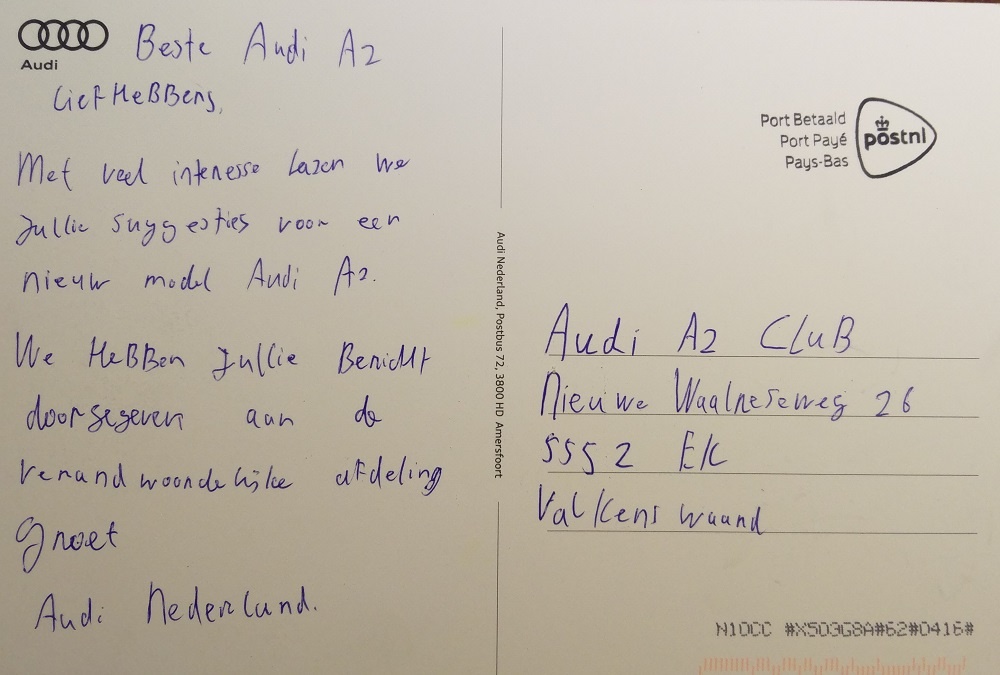 Audi
Beste Audi A2
liefHeBBers,
Met veel interesse Lazen we
Jullie suggesties voor een
nieuw model Audi A2.
We HeBBen Jullie Bericht
doorgegeven aan de
verandwoordelijke afdeling
groet
Audi Nederland.
Audi Nederland, Postbus 72, 3800 HD Amersfoort
Port Betaald
Port Payé
Pays-Bas
postnl
Audi A2 CluB
Nieuwe Waalreseweg 26
5552 EK
Valkenswaard
N10CC #X5D3G8A#62#0416#